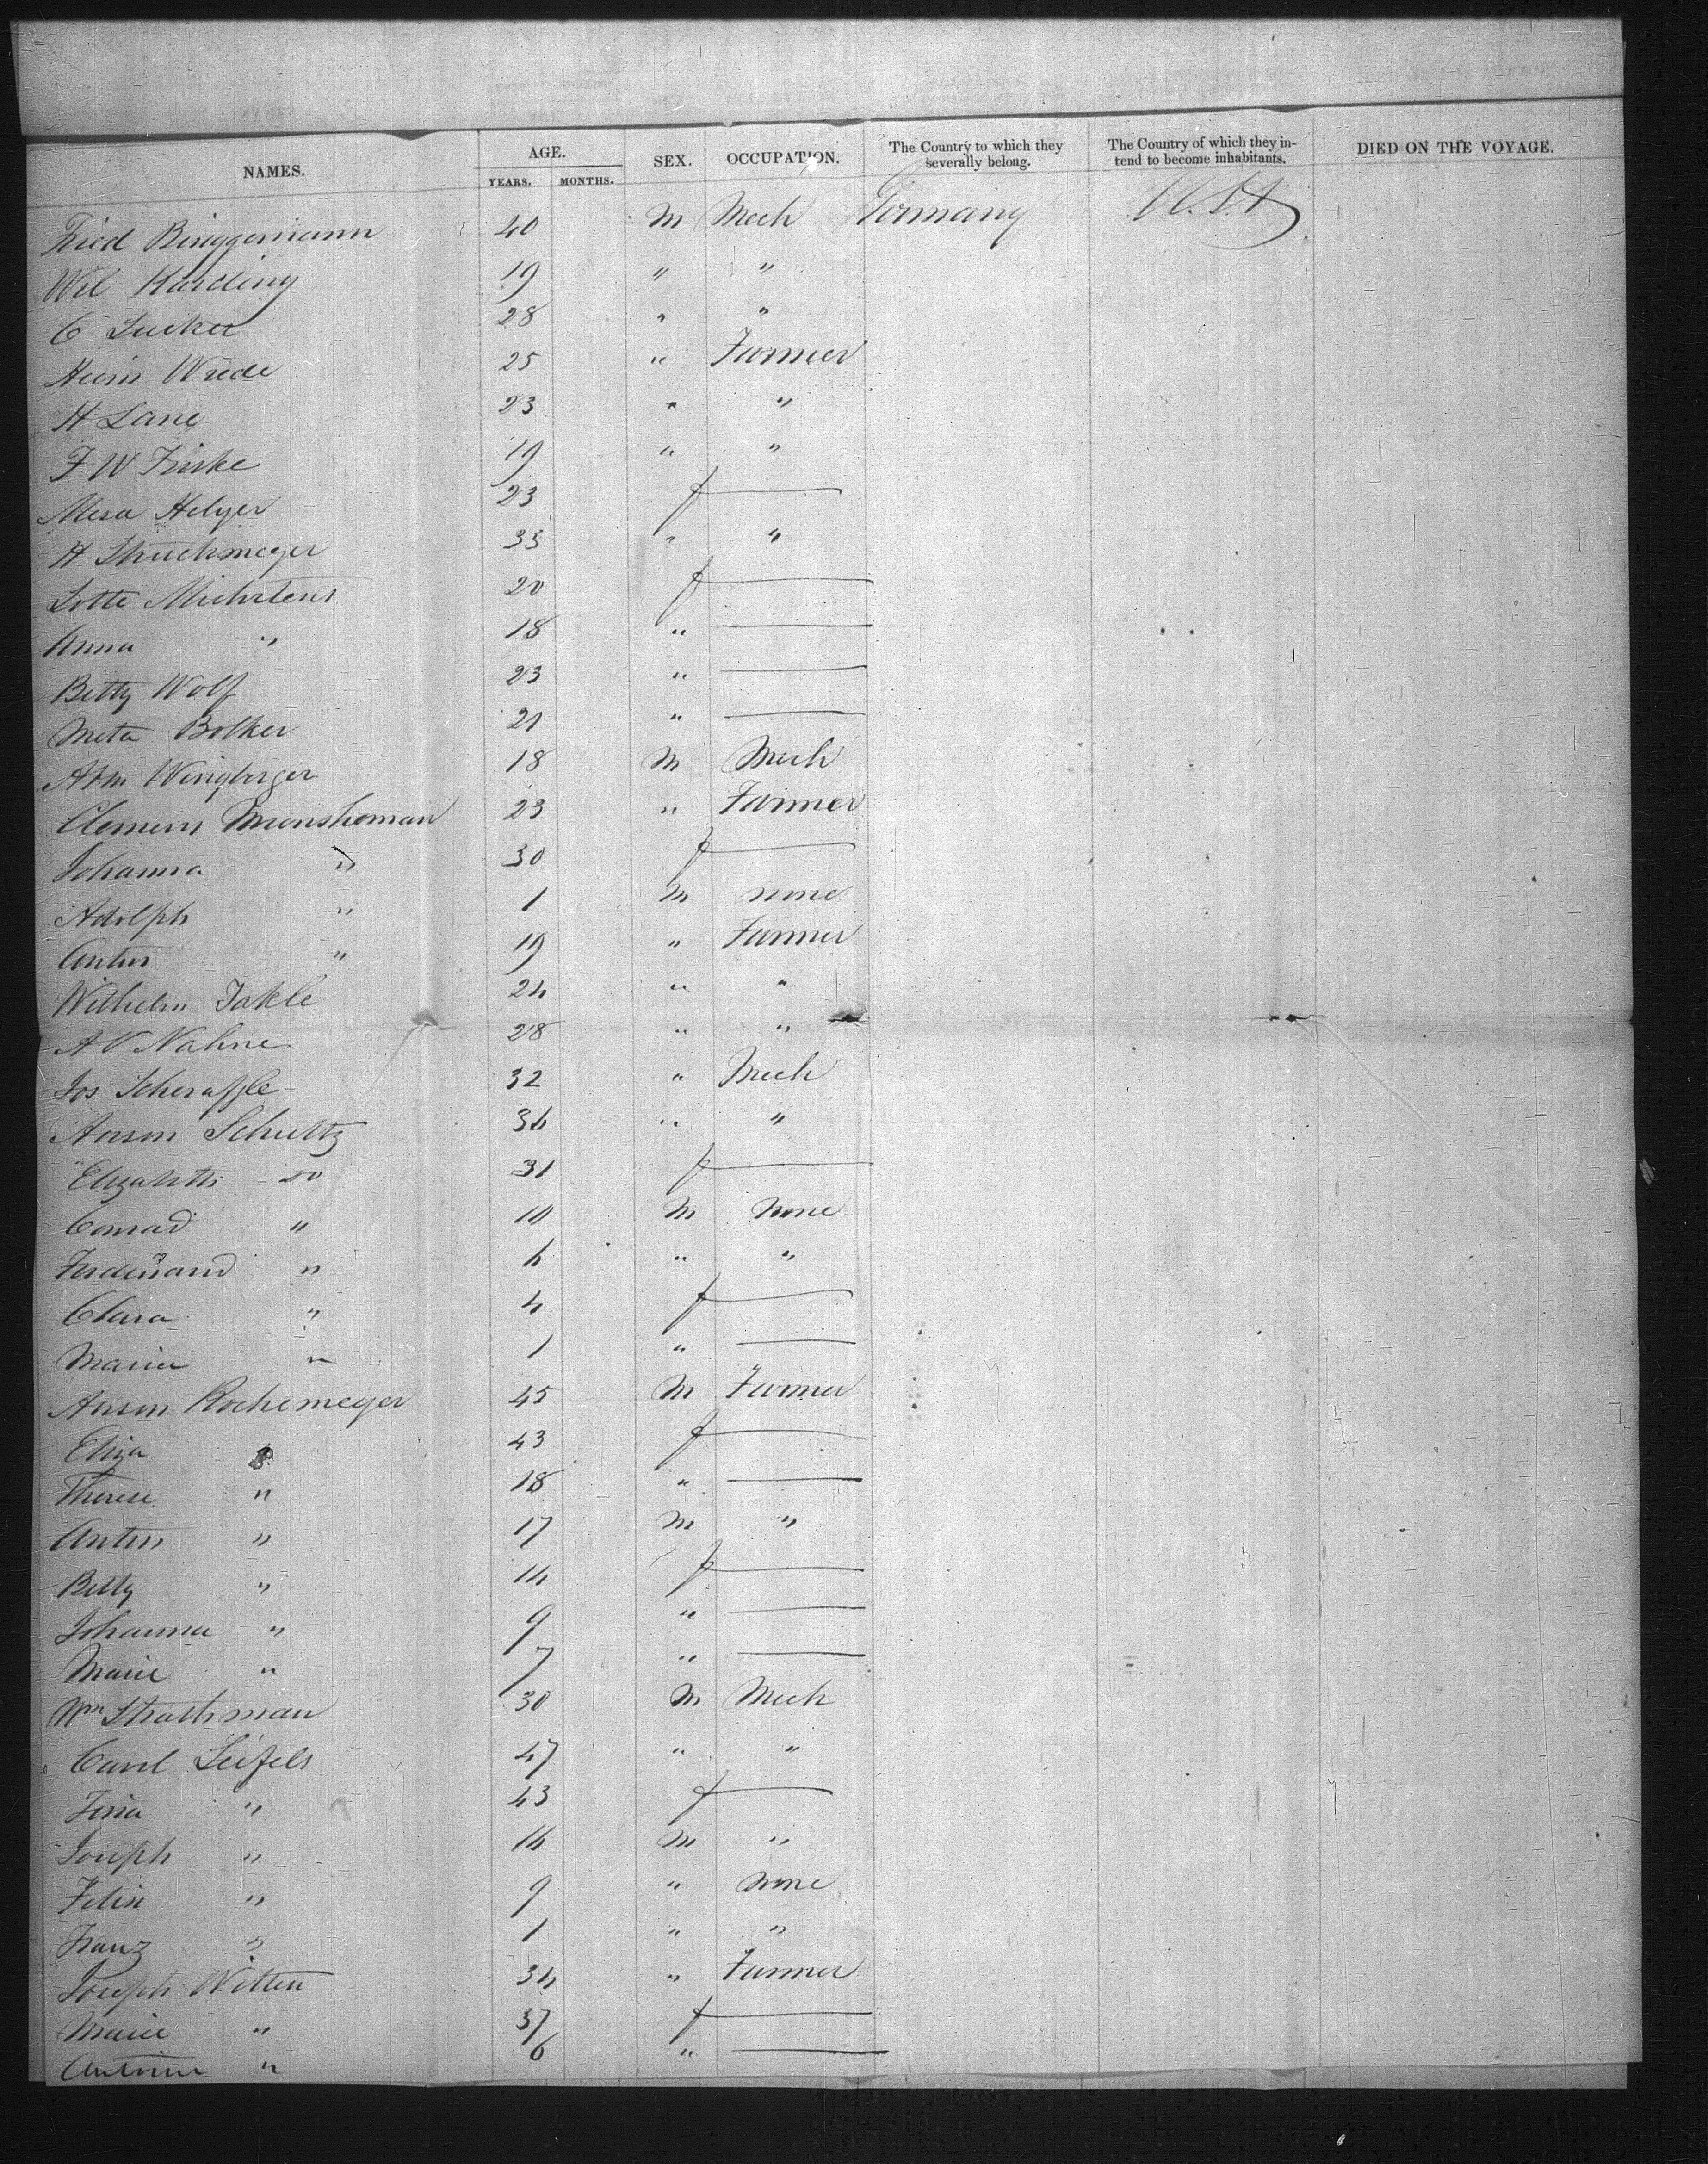 NAMES. AGE. SEX. OCCUPATION. The Country to which they severally belong. The Country of which they intend to become inhabitants. DIED ON THE VOYAGE.
YEARS. MONTHS.
Fried Binggemann 40 M Mech Germany U.S.A
Wil Harding 19 " "
C 28 " "
Heim Wrede 25 " Farmer
H Lane 23 " "
F W Finke 19 " "
Meta Helyer 23 f —
H Struckmeyer 33 " "
Lotte Miehrtens 20 f —
Anna " 18 " —
Betty Wolf 23 " —
Meta Bolker 21 " —
Abm Wingberger 18 M Mech
Clemens 23 " Farmer
Johanna " 30 f —
Adolph " 1 M none
Anton " 19 " Farmer
Wilhelm Jakle 24 " "
A V Nahne 28 " "
Jos Scheraffle 32 " Mech
Anson Schultz 34 " "
Elizabeth do 31 f —
Conrad " 10 M none
Ferdinand " 6 " "
Clara " 4 f —
Maria " 1 " —
Anson Rochemeyer 45 M Farmer
Eliza 43 f —
Therese " 18 " —
Anton " 17 M "
Betty " 14 f —
Johanna " 9 " —
Marie " 7 " —
Wm Strathman 30 M Mech
Carl Seifels 47 " "
" 43 f —
Joseph " 14 M "
Felix " 9 " none
Franz " 1 " "
Joseph Witten 34 " Farmer
Marie " 37 f —
Antoine " 6 " —